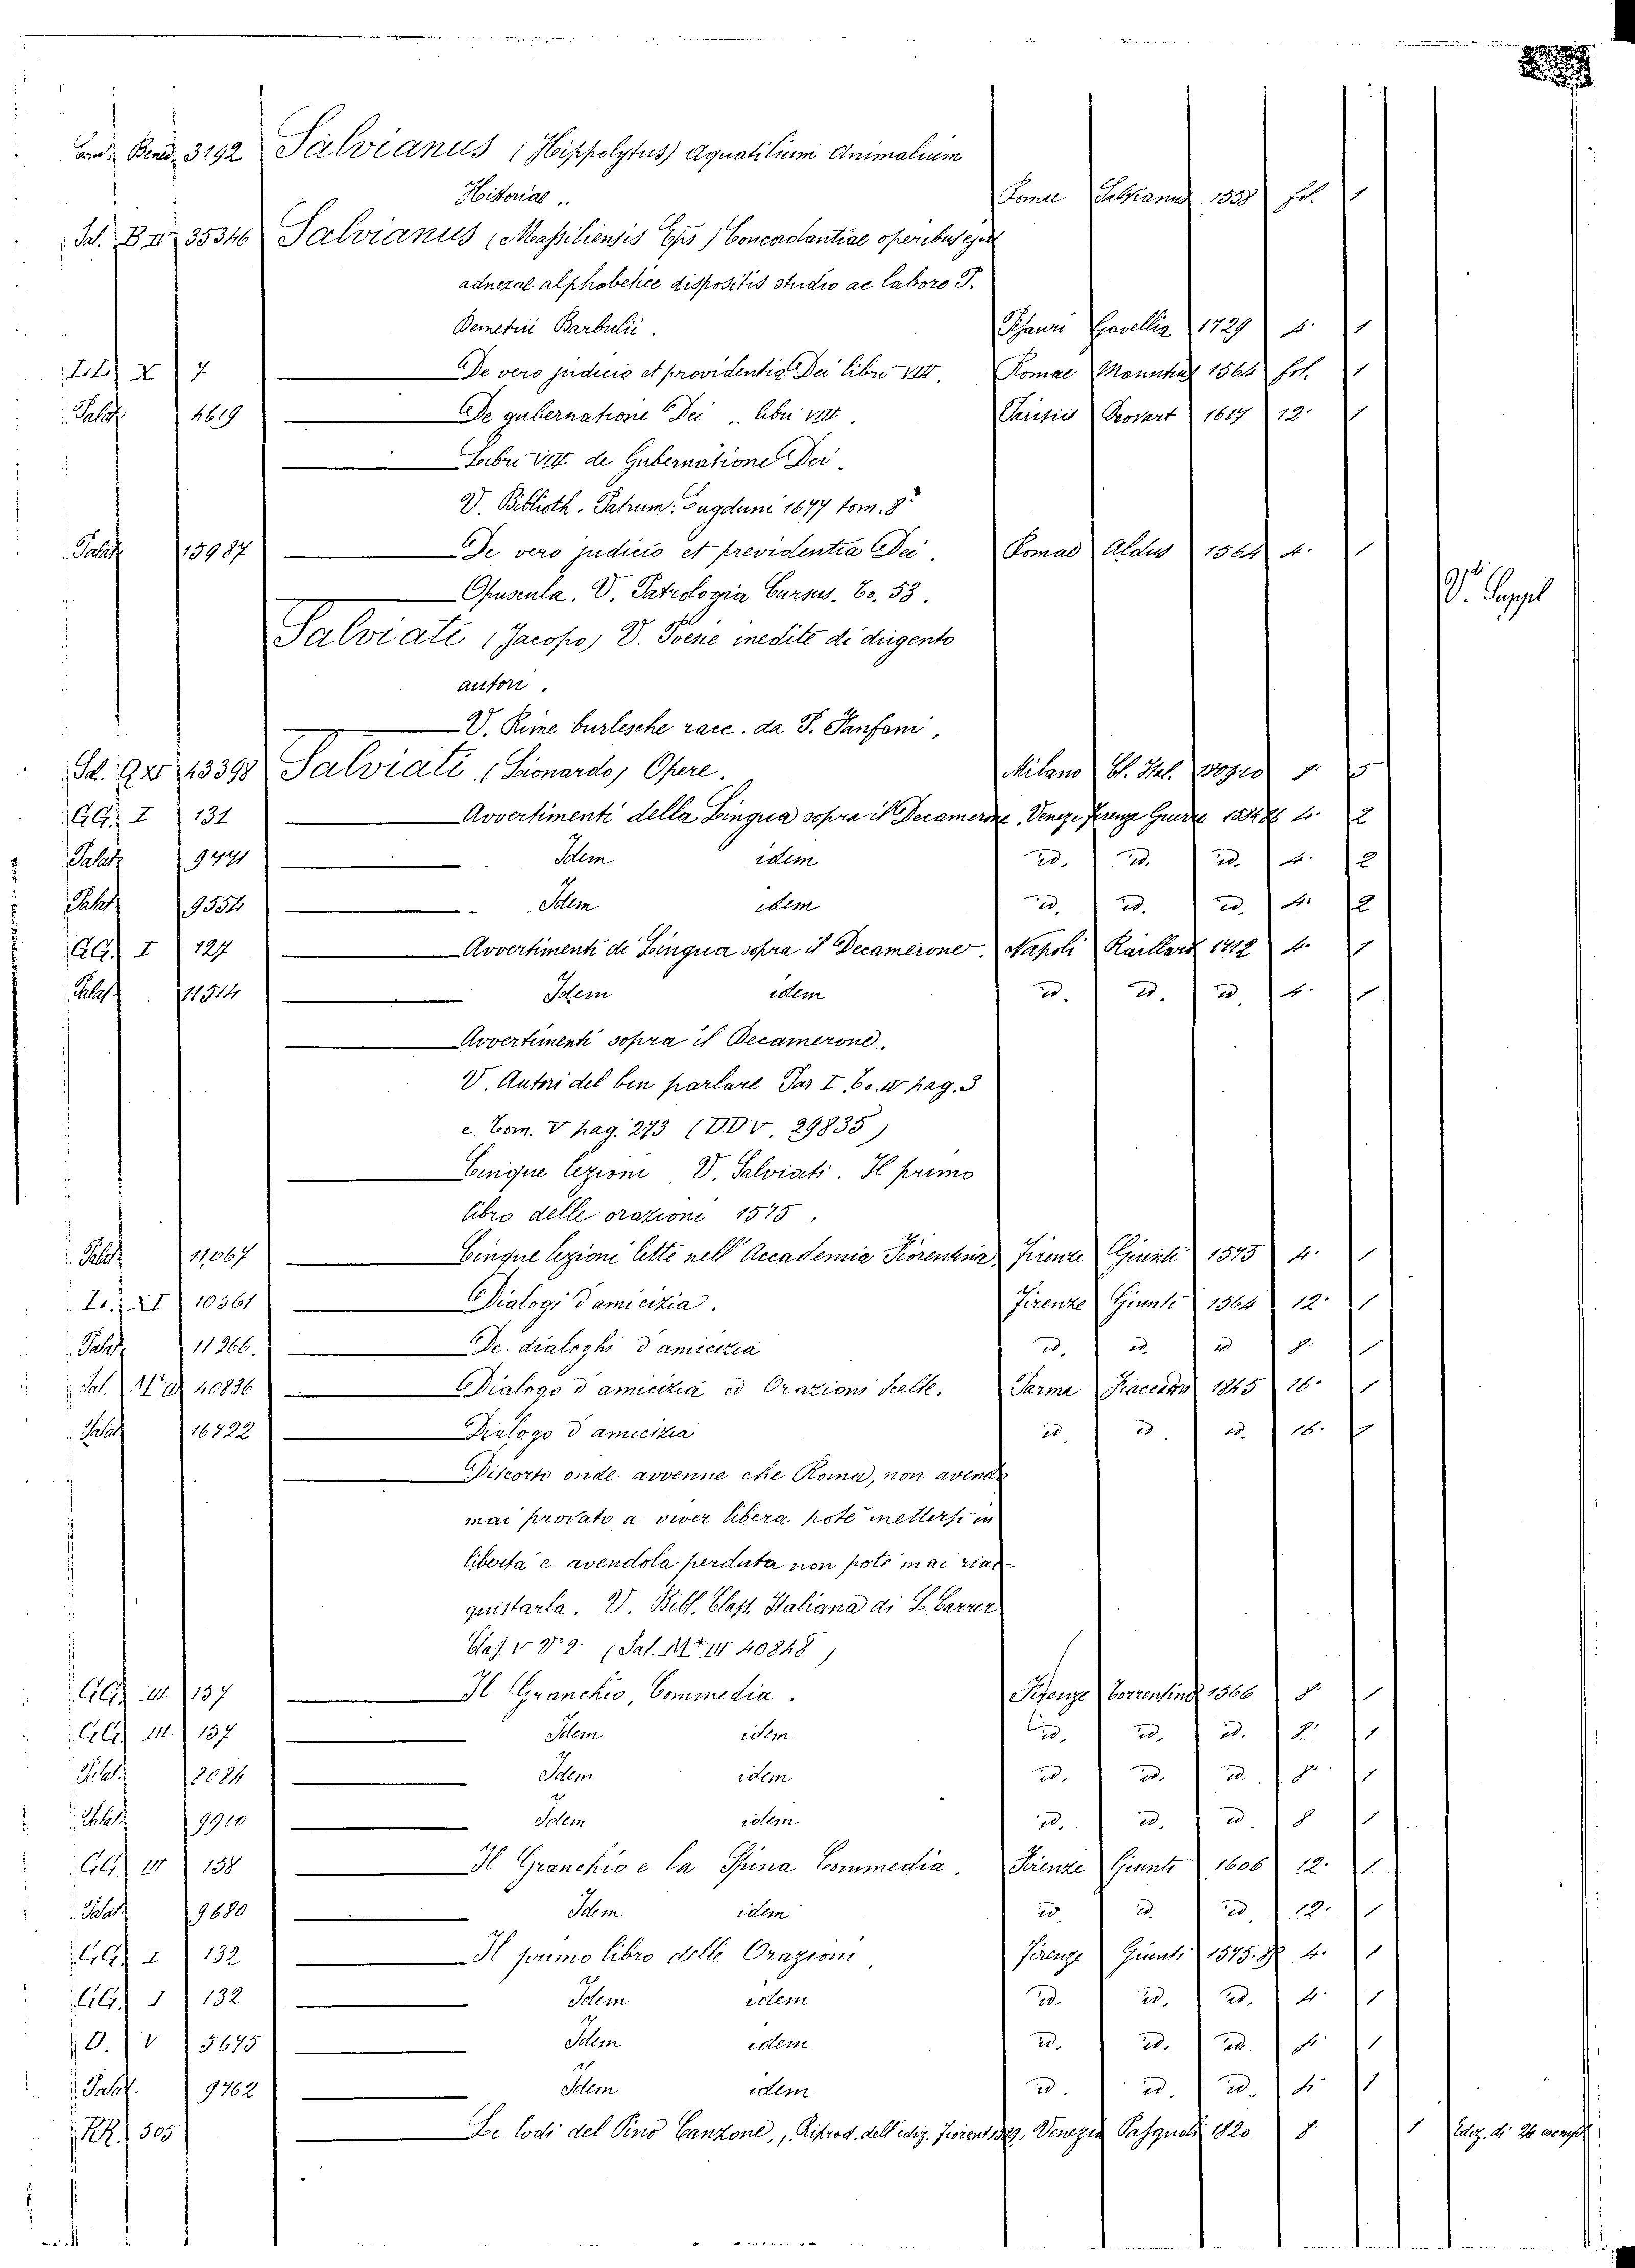 Bened. 3192 Salvianus (Hippolytus) Aquatilium Animalium
Historiae .. Romae Salvianus 1558 fol. 1
Sal. B IV 35346 Salvianus (Massiliensis Eps) Concordantiae operibus ejus
adnexae alphabetice dispositis studio ac labore T.
Demetrii Barbulii. Pisauri Gavellia 1729 4. 1
X 7 De vero judicio et providentia Dei libri VIII. Romae Manutius 1564 fol. 1
Palat. 4619 De gubernatione Dei .. libri VIII. Parisiis 1617 12. 1
Libri VIII de Gubernatione Dei.
V. Biblioth. Patrum. Lugduni 1677 tom. 8°
Palat. 15987 De vero judicio et previdentia Dei. Romae Aldus 1564 4. 1
Opuscula. V. Patrologia Cursus. To. 53. V. Suppl
Salviati (Jacopo) V. Poesie inedite di dugento
autori.
V. Rime burlesche race. da P. Fanfani,
13398 Salviati (Lionardo) Opere. Milano Cl. Ital. 1809-10 8. 5
GG. I 131 Avvertimenti della Lingua sopra il Decamerone, Venez. Firenze Guerra 1584 86 4. 2
Palat. 9441 Idem idem id. id. id. 4. 2
Palat. 9554 Idem idem id. id. id. 4. 2
GG. I 127 Avvertimenti di Lingua sopra il Decamerone. Napoli Raillard 1712 4. 1
Palat. 11514 Idem idem id. id. id. 4. 1
Avvertimenti sopra il Decamerone.
V. Autori del ben parlare Par I. To. IV pag. 3
e. Tom. V pag. 273 (DD V. 29835)
Cinque lezioni V. Salviati. Il primo
libro delle orazioni 1575.
Palat. 11,067 Cinque lezioni lette nell' Accademia Fiorentina Firenze Giunti 1575 4. 1
XI 10561 Dialogi d'amicizia. Firenze Giunti 1564 12. 1
Palat. 11266. De. dialoghi d'amicizia id. id. id. 8. 1
Sal. 40836 Dialogo d'amicizia ed Orazioni scelte. Parma Fiaccadori 1845 16. 1
Palat. 16422 Dialogo d'amicizia id. id. id. 16. 1
Discorso onde avvenne che Roma, non avendo
mai provato a viver libera potè mettersi in
libertà e avendola perduta non potè mai riac-
quistarla. V. Bibl. Class. Italiana di L. Carrer
Clas. V V° 2. (Sal. III. 40848)
GG. III. 137 Il Granchio, Commedia. Firenze Torrentino 1566 8. 1
GG. III. 137 Idem idem id. id. id. 8. 1
Palat. 8084 Idem idem id. id. id. 8. 1
Palat. 9910 Idem idem id. id. id. 8 1
GG. III 138 Il Granchio e la Spina Commedia. Firenze Giunti 1606 12. 1.
Palat. 9680 Idem idem id. id. id. 12. 1
GG. I 132 Il primo libro delle Orazioni Firenze Giunti 1575. 4. 1
GG. I 132 Idem idem id. id. id. 4. 1
O. V 5675 Idem idem id. id. id. 4. 1
Palat. 9762 Idem idem id. id. id. 4. 1
RR. 505 Le lodi del Pino Canzone, (Riprod. dell' ediz. Fiorent. 1589, Venezia Pasquali 1820 8. 1 Ediz. di 26 esempl